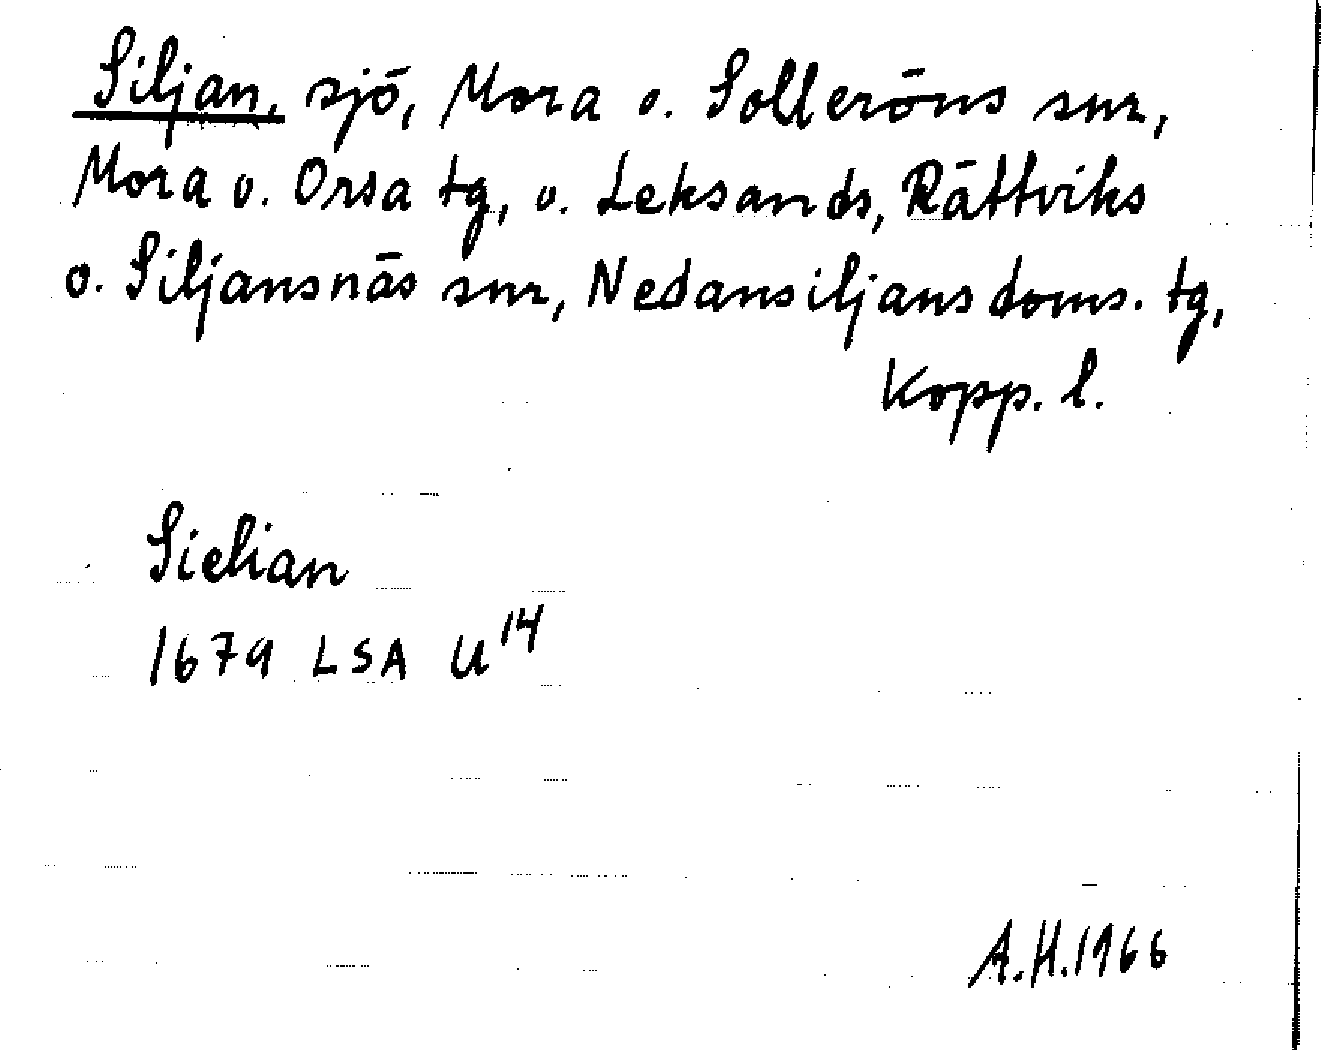 Siljan, sjö, Mora o. Solleröns snr,
Mora o. Orsa tg, o. Leksands, Rättviks
o. Siljansnäs snr, Nedansiljans doms. tg,
Kopp. l.
Sielian
1679 LSA U14
A.H.1966